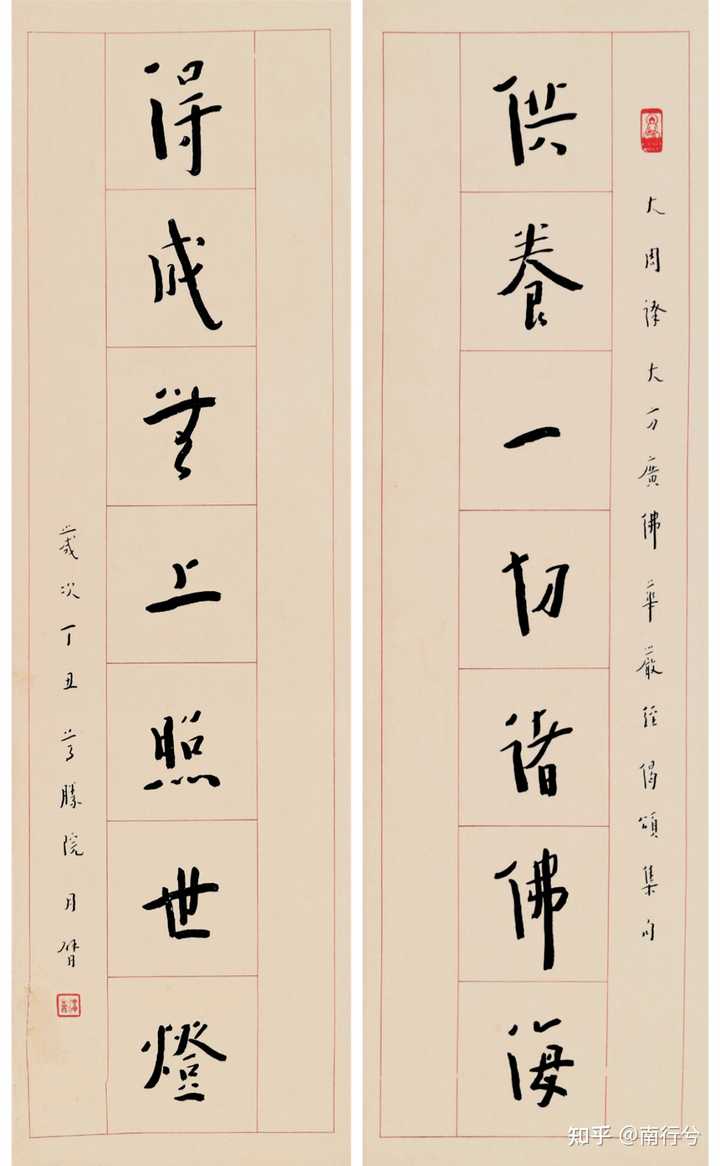 大周譯大方廣佛華嚴經偈頌集句
供養一切諸佛海
得成無上照世燈
歲次丁丑尊勝院月臂
知乎 @南行兮